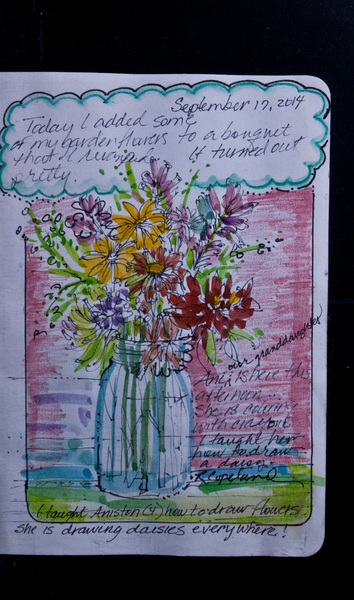 September 17, 2014
Today I added some
of my garden flowers to a bouquet
that I It turned out
pretty.
our granddaughter
Ani is here this
afternoon...
She is coloring
with crayons
I taught her
how to draw
a daisy.
R Copeland
I taught Aniston (4) how to draw flowers.
She is drawing daisies everywhere!